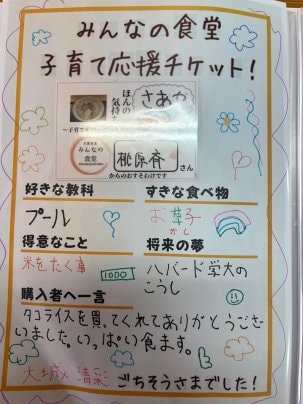 みんなの食堂
子育て応援チケット!
ほんの気持ち
さあや
みんなの
食堂
桃原斉さん
からのおすそわけです
好きな教科
すきな食べ物
プール
お菓子
かし
得意なこと
将来の夢
米をたく事
ハバード学大の
こうし
1000
購入者へ一言
タコライスを買ってくれてありがとうござ
いました。いっぱい食ます。
ごちそうさまでした!